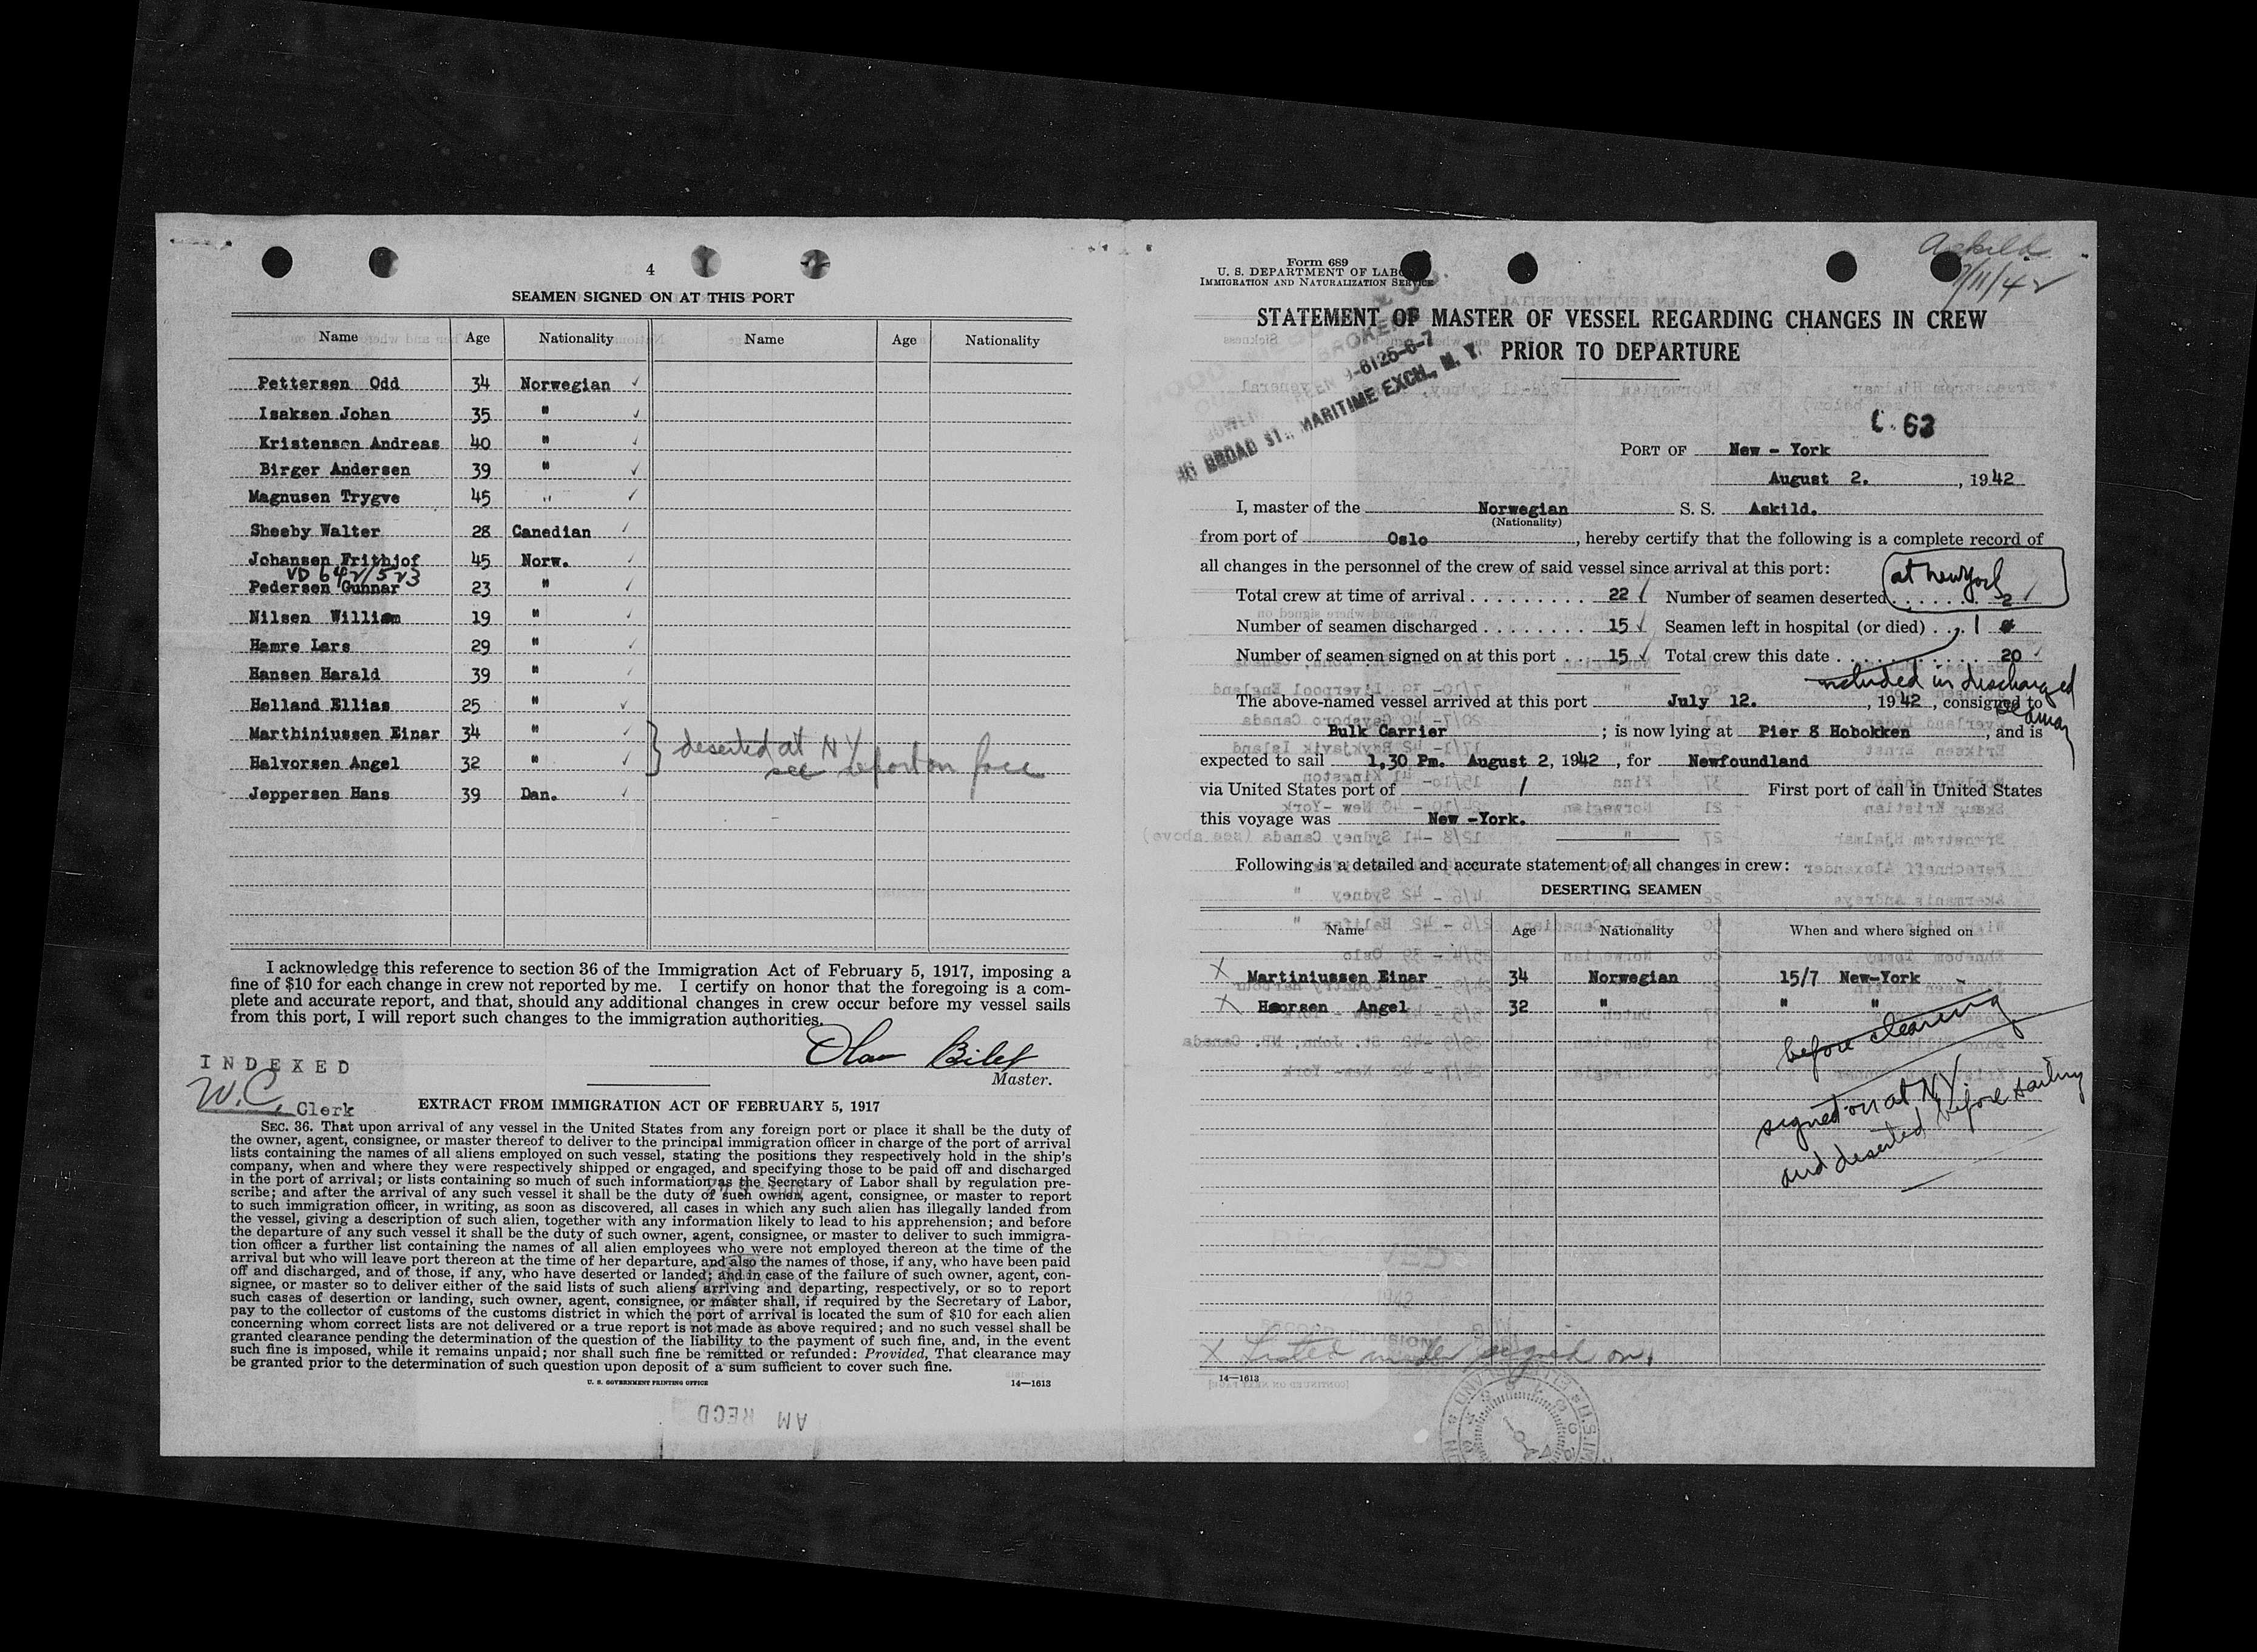 4
SEAMEN SIGNED ON AT THIS PORT
Name Age Nationality Name Age Nationality
Pettersen Odd 34 Norwegian ✓
Isaksen Johan 35 " ✓
Kristensen Andreas 40 " ✓
Birger Andersen 39 " ✓
Magnusen Trygve 45 " ✓
Sheeby Walter 28 Canedian ✓
Johansen Frithjof 45 Norw. ✓
VD 642/523
Pedersen Gunnar 23 " ✓
Nilsen William 19 " ✓
Hamre Lars 29 " ✓
Hansen Harald 39 " ✓
Helland Ellias 25 " ✓
Marthiniussen Einar 34 " ✓
Halvorsen Angel 32 " ✓
deserted at NY
see report on face
Jeppersen Hans 39 Dan. ✓
I acknowledge this reference to section 36 of the Immigration Act of February 5, 1917, imposing a
fine of $10 for each change in crew not reported by me. I certify on honor that the foregoing is a com-
plete and accurate report, and that, should any additional changes in crew occur before my vessel sails
from this port, I will report such changes to the immigration authorities.
Master.
INDEXED
W.C. Clerk
EXTRACT FROM IMMIGRATION ACT OF FEBRUARY 5, 1917
SEC. 36. That upon arrival of any vessel in the United States from any foreign port or place it shall be the duty of
the owner, agent, consignee, or master thereof to deliver to the principal immigration officer in charge of the port of arrival
lists containing the names of all aliens employed on such vessel, stating the positions they respectively hold in the ship's
company, when and where they were respectively shipped or engaged, and specifying those to be paid off and discharged
in the port of arrival; or lists containing so much of such information as the Secretary of Labor shall by regulation pre-
scribe; and after the arrival of any such vessel it shall be the duty of such owner, agent, consignee, or master to report
to such immigration officer, in writing, as soon as discovered, all cases in which any such alien has illegally landed from
the vessel, giving a description of such alien, together with any information likely to lead to his apprehension; and before
the departure of any such vessel it shall be the duty of such owner, agent, consignee, or master to deliver to such immigra-
tion officer a further list containing the names of all alien employees who were not employed thereon at the time of the
arrival but who will leave port thereon at the time of her departure, and also the names of those, if any, who have been paid
off and discharged, and of those, if any, who have deserted or landed; and in case of the failure of such owner, agent, con-
signee, or master so to deliver either of the said lists of such aliens arriving and departing, respectively, or so to report
such cases of desertion or landing, such owner, agent, consignee, or master shall, if required by the Secretary of Labor,
pay to the collector of customs of the customs district in which the port of arrival is located the sum of $10 for each alien
concerning whom correct lists are not delivered or a true report is not made as above required; and no such vessel shall be
granted clearance pending the determination of the question of the liability to the payment of such fine, and, in the event
such fine is imposed, while it remains unpaid; nor shall such fine be remitted or refunded: Provided, That clearance may
be granted prior to the determination of such question upon deposit of a sum sufficient to cover such fine.
U. S. GOVERNMENT PRINTING OFFICE 14—1613
AM RECD
Askild
7/11/42
Form 689
U. S. DEPARTMENT OF LABOR
IMMIGRATION AND NATURALIZATION SERVICE
STATEMENT OF MASTER OF VESSEL REGARDING CHANGES IN CREW
PRIOR TO DEPARTURE
9-6125-6-7
BROAD ST., MARITIME EXCH., N. Y.
C. 63
PORT OF New - York
August 2. , 1942
I, master of the Norwegian S. S. Askild.
(Nationality)
from port of Oslo , hereby certify that the following is a complete record of
all changes in the personnel of the crew of said vessel since arrival at this port:
at New York
Total crew at time of arrival . . . . . . . . . . 22 ✓ Number of seamen deserted . . . . . . 2 ✓
Number of seamen discharged . . . . . . . . 15 ✓ Seamen left in hospital (or died) . . . 1
Number of seamen signed on at this port . . 15 ✓ Total crew this date . . . . . . . . . . . 20 ✓
included in discharged
seaman
The above-named vessel arrived at this port July 12. , 1942 , consigned to
Bulk Carrier ; is now lying at Pier 8 Hobokken , and is
expected to sail 1,30 Pm. August 2, 1942 , for Newfoundland
via United States port of / First port of call in United States
this voyage was New -York.
Following is a detailed and accurate statement of all changes in crew:
DESERTING SEAMEN
Name Age Nationality When and where signed on
X Martiniussen Einar 34 Norwegian 15/7 New-York
X Haorsen Angel 32 " " "
before clearing
signed on at NY
and deserted before sailing
X Listed under signed on.
14—1613